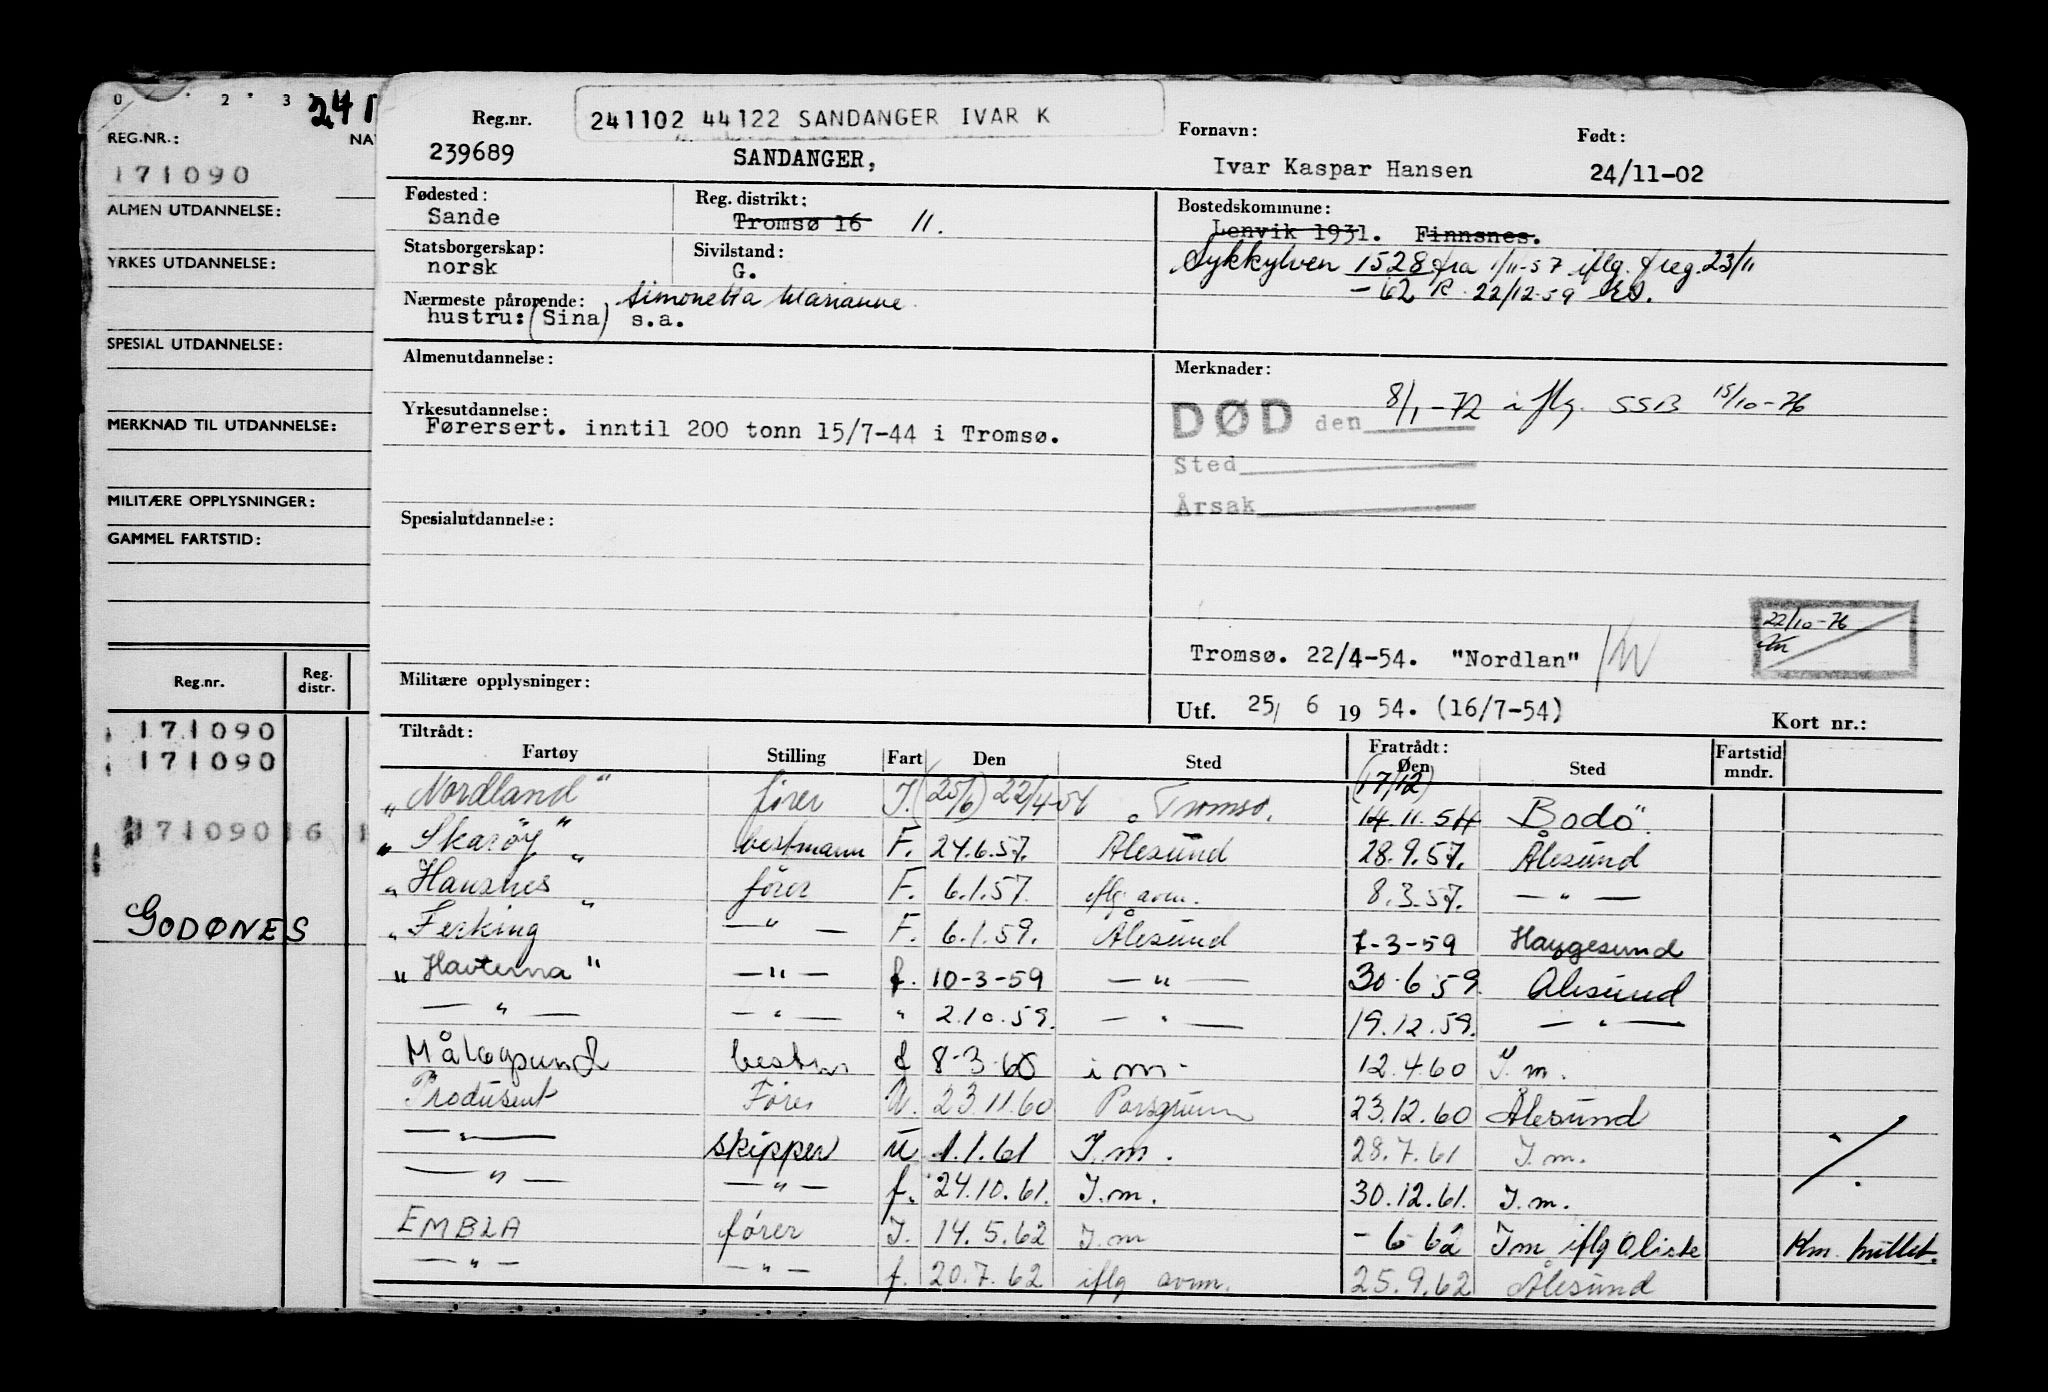 0 2 3
241
REG.NR.: NA
171090
ALMEN UTDANNELSE:
YRKES UTDANNELSE:
SPESIAL UTDANNELSE:
MERKNAD TIL UTDANNELSE:
MILITÆRE OPPLYSNINGER:
GAMMEL FARTSTID:
Reg.nr. Reg. distr.
171090
171090
17109016 1
GODØNES
Reg.nr. 241102 44122 SANDANGER IVAR K Fornavn: Født:
239689 SANDANGER, Ivar Kaspar Hansen 24/11-02
Fødested: Reg. distrikt: Bostedskommune:
Sande Tromsø 16 11. Lenvik 1931. Finnsnes.
Statsborgerskap: Sivilstand: Sykkylven 1528 fra 1/11-57 iflg. freg. 23/11
norsk G. - 62 R 22/12-59
Nærmeste pårørende: Simonetta Marianne
hustru: (Sina) s.a.
Almenutdannelse: Merknader:
DØD den 8/1-72 iflg. SSB 15/10-76
Yrkesutdannelse:
Førersert. inntil 200 tonn 15/7-44 i Tromsø.
Sted
Årsak
Spesialutdannelse:
22/10-76
Tromsø. 22/4-54. "Nordlan"
Militære opplysninger:
Utf. 25/ 6 19 54. (16/7-54) Kort nr.:
Tiltrådt: Fratrådt:
Fartøy Stilling Fart Den Sted Den Sted Fartstid mndr.
(17/12)
"Nordland" fører I. (25/6) 22/4-54 Tromsø. 14.11.54 Bodö.
"Skarøy" bestmann F. 24.6.57. Ålesund 28.9.57. Ålesund
"Hausnes" fører F. 6.1.57. iflg avm. 8.3.57. — " —
"Ferking — " — F. 6.1.59. Ålesund 7-3-59 Haugesund
"Havterna" — " — f. 10-3-59 — " — 30.6.59. Ålesund
— " — — " — " 2.10.59. — " — 19.12.59. — " —
Målogsund bestm f 8-3-60 i m. 12.4.60 I.m.
Produsent Fører U. 23.11.60 Porsgrunn 23.12.60 Ålesund
— " — skipper U 1.1.61 I.m. 28.7.61 I.m.
— " — — " — f. 24.10.61. I.m. 30.12.61. I.m.
EMBLA fører I. 14.5.62 I.m - 6-62 Im iflg aliste Km. hullet.
— " — — " — f. 20.7.62 iflg avm. 25.9.62 Ålesund